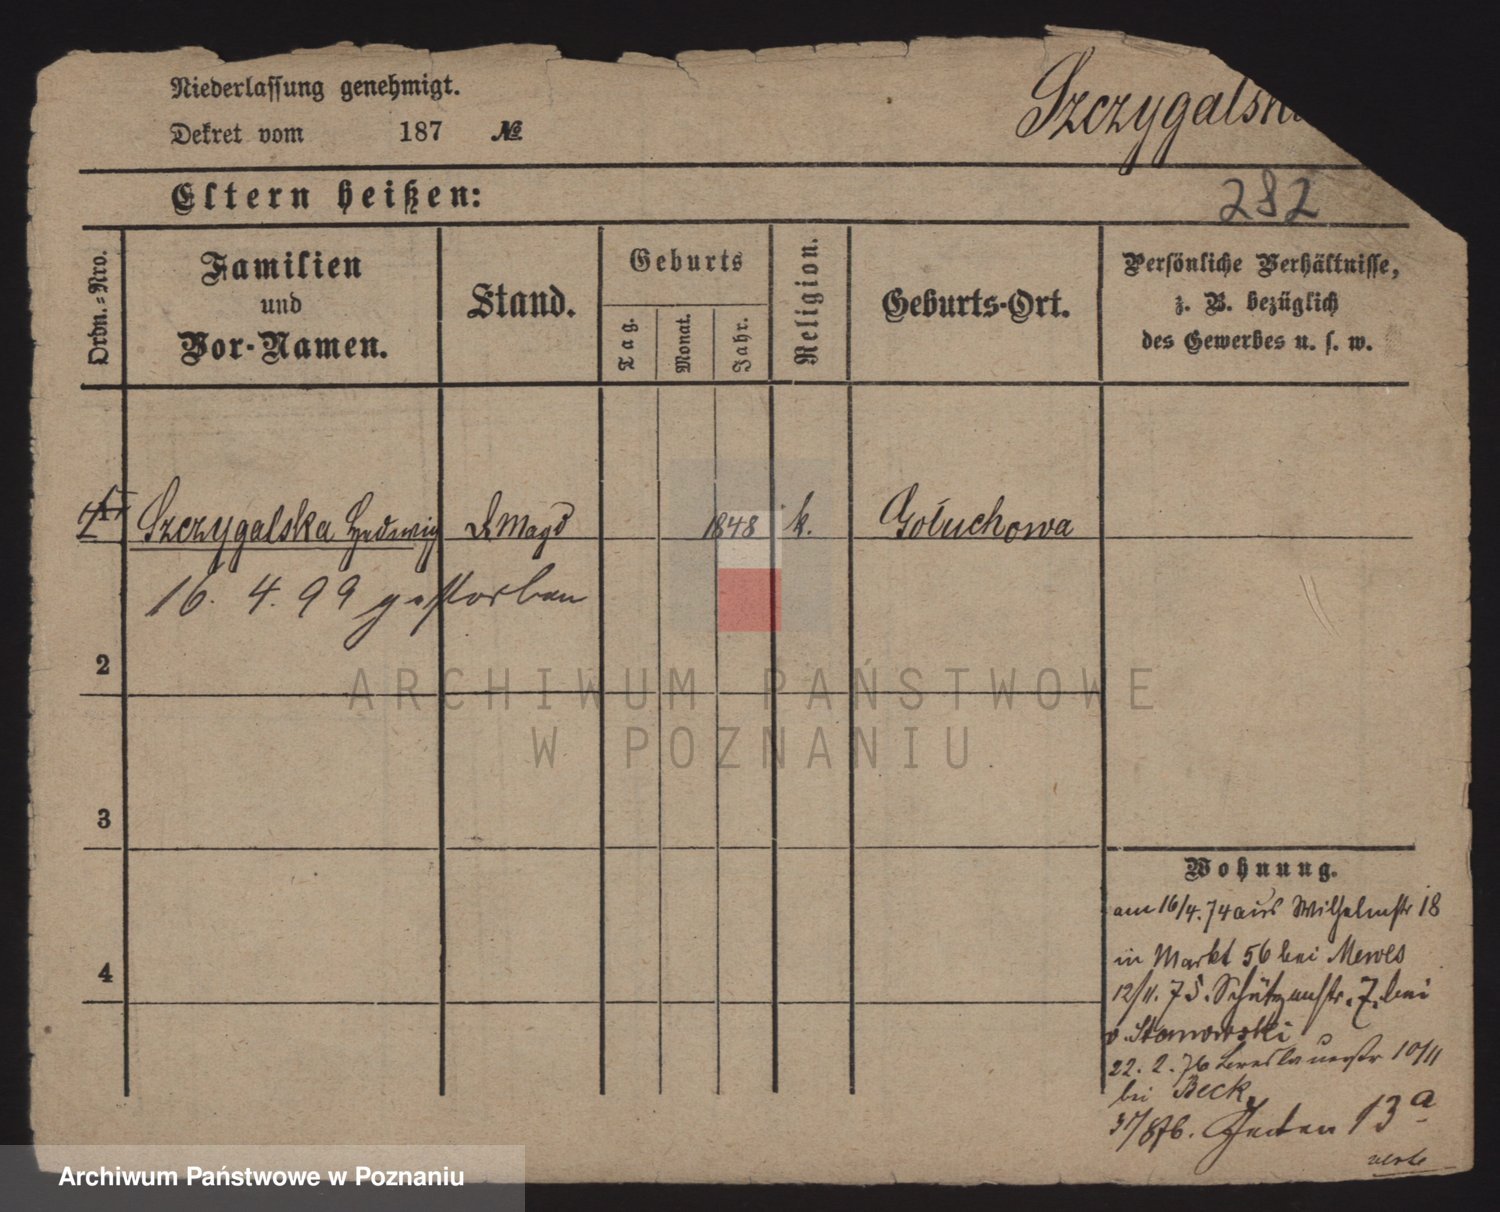 Niederlassung genehmigt.
Dekret vom 187 №
Szczygalska
282
Eltern heißen:
Ordn.-Nro.
Familien
und
Vor-Namen.
Stand.
Geburts
Tag.
Monat.
Jahr.
Religion.
Geburts-Ort.
Persönliche Verhältnisse,
z. B. bezüglich
des Gewerbes u. s. w.
1 Szczygalska Hedwig D Magd 1848 k. Gołuchowa
16. 4. 99 gestorben
2
3
4
Wohnung.
am 16/4. 74 aus Wilhelmstr 18
in Markt 56 bei Mewes
12/11. 75. Schützenstr. 7. bei
v. Stanowski
22. 2. 76 Breslauerstr 10/11
bei Beck.
31/8 76. 13a
ARCHIWUM PAŃSTWOWE
W POZNANIU
Archiwum Państwowe w Poznaniu